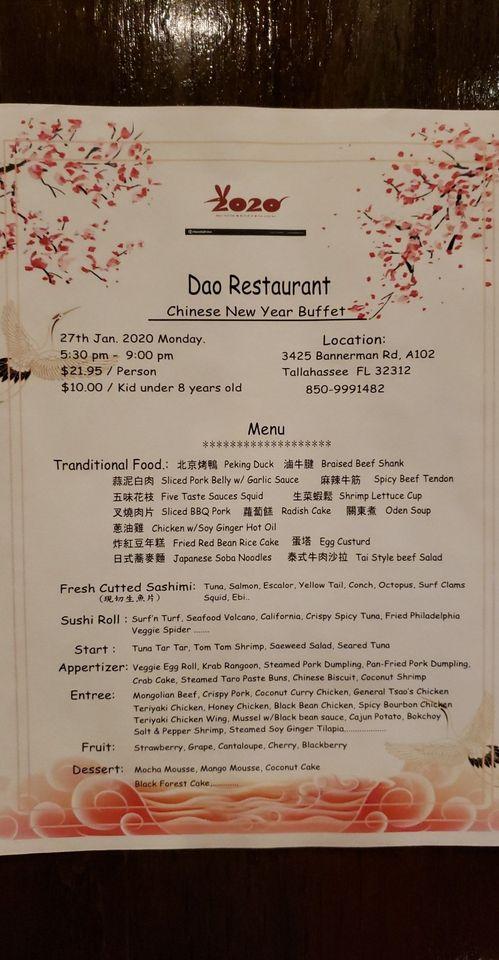 2020
Dao Restaurant
Chinese New Year Buffet
27th Jan. 2020 Monday.
5:30 pm - 9:00 pm
$21.95 / Person
$10.00 / Kid under 8 years old
Location:
3425 Bannerman Rd, A102
Tallahassee FL 32312
850-9991482
Menu
*******************
Tranditional Food.: 北京烤鴨 Peking Duck 滷牛腱 Braised Beef Shank
蒜泥白肉 Sliced Pork Belly w/ Garlic Sauce 麻辣牛筋 Spicy Beef Tendon
五味花枝 Five Taste Sauces Squid 生菜蝦鬆 Shrimp Lettuce Cup
叉燒肉片 Sliced BBQ Pork 蘿蔔糕 Radish Cake 關東煮 Oden Soup
蔥油雞 Chicken w/Soy Ginger Hot Oil
炸紅豆年糕 Fried Red Bean Rice Cake 蛋塔 Egg Custurd
日式蕎麥麵 Japanese Soba Noodles 泰式牛肉沙拉 Tai Style beef Salad
Fresh Cutted Sashimi: Tuna, Salmon, Escalor, Yellow Tail, Conch, Octopus, Surf Clams
(現切生魚片) Squid, Ebi..
Sushi Roll : Surf'n Turf, Seafood Volcano, California, Crispy Spicy Tuna, Fried Philadelphia
Veggie Spider .......
Start : Tuna Tar Tar, Tom Tom Shrimp, Saeweed Salad, Seared Tuna
Appertizer: Veggie Egg Roll, Krab Rangoon, Steamed Pork Dumpling, Pan-Fried Pork Dumpling,
Crab Cake, Steamed Taro Paste Buns, Chinese Biscuit, Coconut Shrimp
Entree: Mongolian Beef, Crispy Pork, Coconut Curry Chicken, General Tsao's Chicken
Teriyaki Chicken, Honey Chicken, Black Bean Chicken, Spicy Bourbon Chicken
Teriyaki Chicken Wing, Mussel w/Black bean sauce, Cajun Potato, Bokchoy
Salt & Pepper Shrimp, Steamed Soy Ginger Tilapia...................
Fruit: Strawberry, Grape, Cantaloupe, Cherry, Blackberry
Dessert: Mocha Mousse, Mango Mousse, Coconut Cake
Black Forest Cake,............